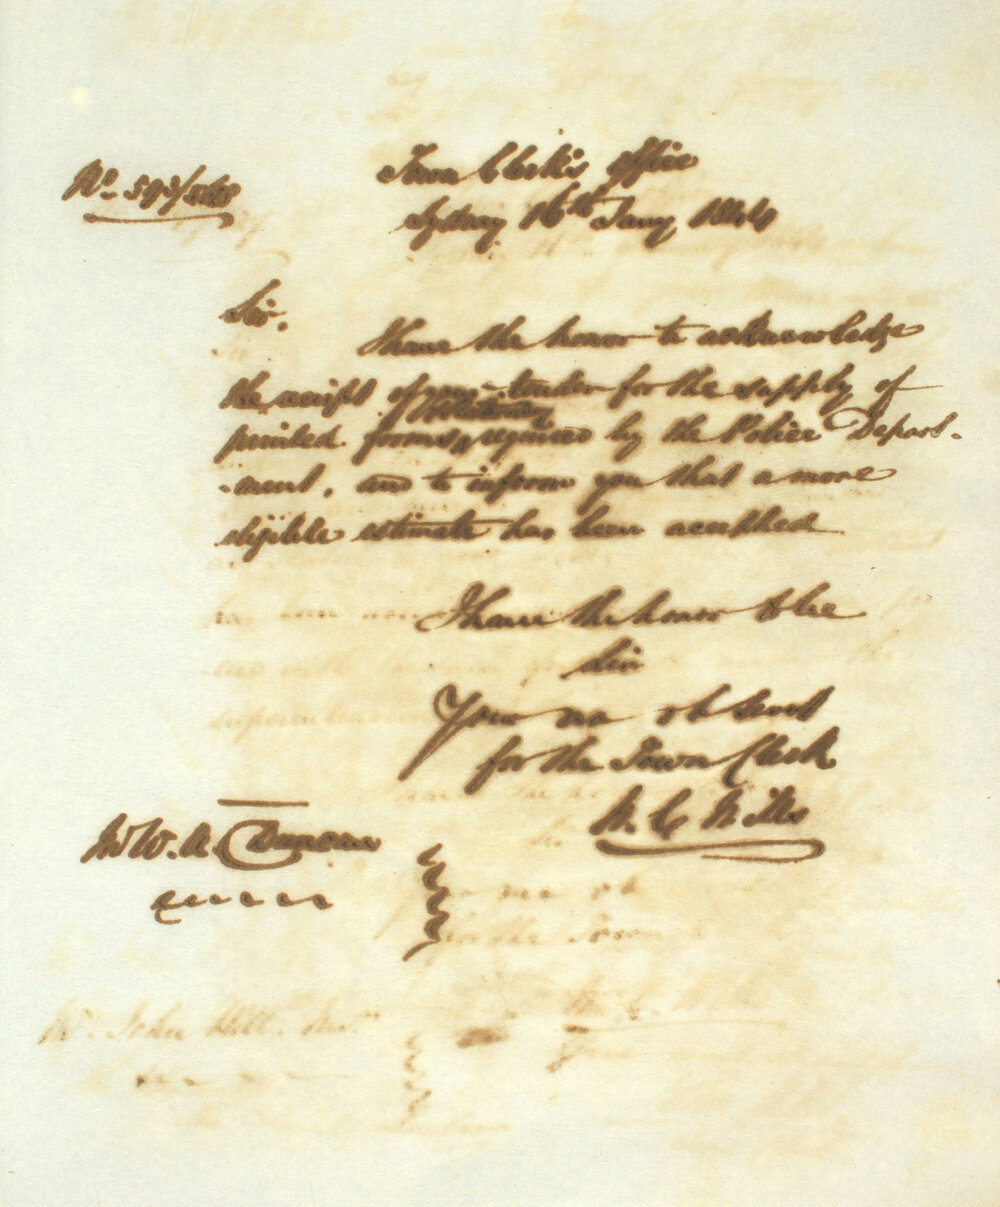 Town Clerk's office
Sydney 16th Jany 1844
Sir.
I have the honor to acknowledge
the receipt of your tender for the supply of
Stationery
printed forms & required by the Police Depart-
-ment, and to inform you that a more
eligible estimate has been accepted
I have the honor to be
Sir
Your mo ob Servt
for the Town Clerk
W. C. Wills
Mr W. A. Duncan